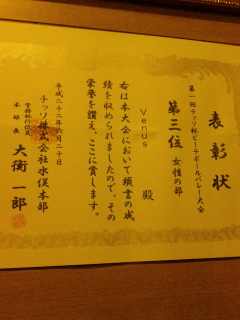 表彰状
第一回チッソ杯ビーチボールバレー大会
第三位 女性の部
Venus 殿
右は本大会において頭書の成
績を収められましたので、その
栄誉を讃え、ここに賞します。
平成二十二年六月二十日
チッソ株式会社水俣本部
常務執行役員
本部長 大衛一郎